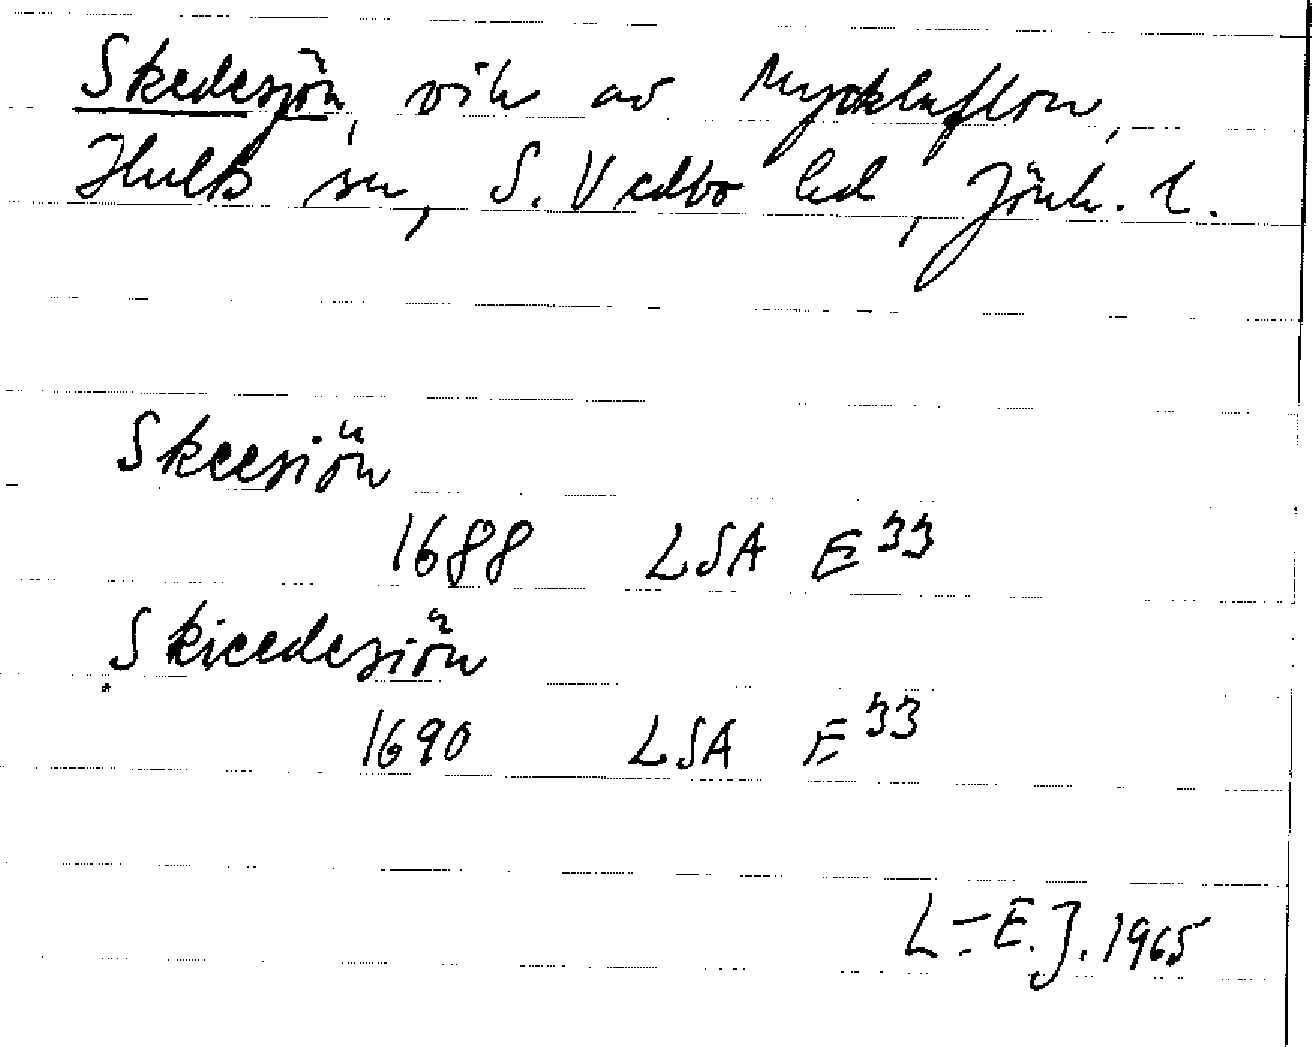 Skedesjön, vik av Mycklaflon,
Hults sn, S. Vedbo hd, Jönk. l.
Skeesiön
1688 LSA E 33
Skieedesiön
1690 LSA E 33
L-E. J. 1965